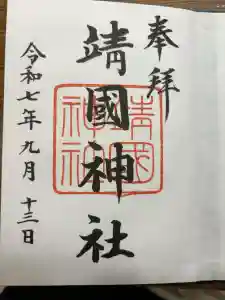 奉拝
靖國神社
令和七年九月十三日
靖國神社